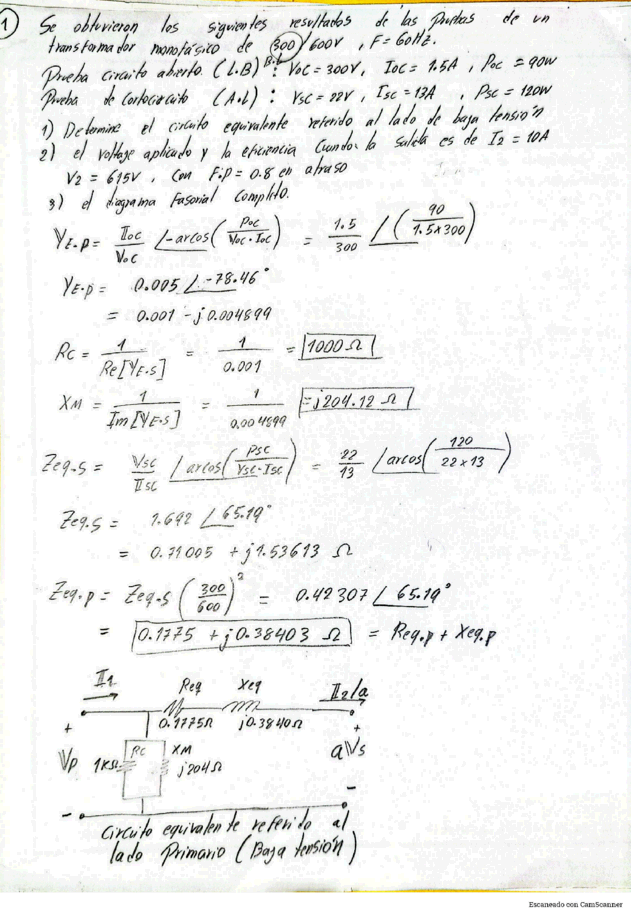 1 Se obtuvieron los siguientes resultados de las Pruebas de un
transformador monofásico de 300/600V, F=60Hz.
Prueba circuito abierto. (L.B) B.L : VOC=300V, IOC=1.5A, POC=90W
Prueba de Cortocircuito (A.L) : VSC=22V, ISC=13A, PSC=120W
1) Determine el circuito equivalente referido al lado de baja tensión
2) el voltage aplicado y la eficiencia Cuando la salida es de I2=10A
V2=615V, con F.P=0.8 en atraso
3) el diagrama fasorial completo.
YE.p = IOC/VOC ∠-arcos(POC/VOC·IOC) = 1.5/300 ∠(90/1.5x300)
YE.p = 0.005 ∠-78.46°
= 0.001 - j0.004899
RC = 1/Re[YE.s] = 1/0.001 = 1000Ω
XM = 1/Im[YE.s] = 1/0.004899 = j204.12 Ω
Zeq.s = VSC/ISC ∠arcos(PSC/VSC·ISC) = 22/13 ∠arcos(120/22x13)
Zeq.s = 1.692 ∠65.19°
= 0.71005 + j1.53613 Ω
Zeq.p = Zeq.s (300/600)² = 0.42307 ∠65.19°
= 0.1775 + j0.38403 Ω = Req.p + Xeq.p
I1 Req Xeq I2/a
0.1775Ω j0.3840Ω
+ +
Vp 1KΩ RC XM j204Ω aVs
- -
Circuito equivalente referido al
lado Primario (Baja tensión)
Escaneado con CamScanner